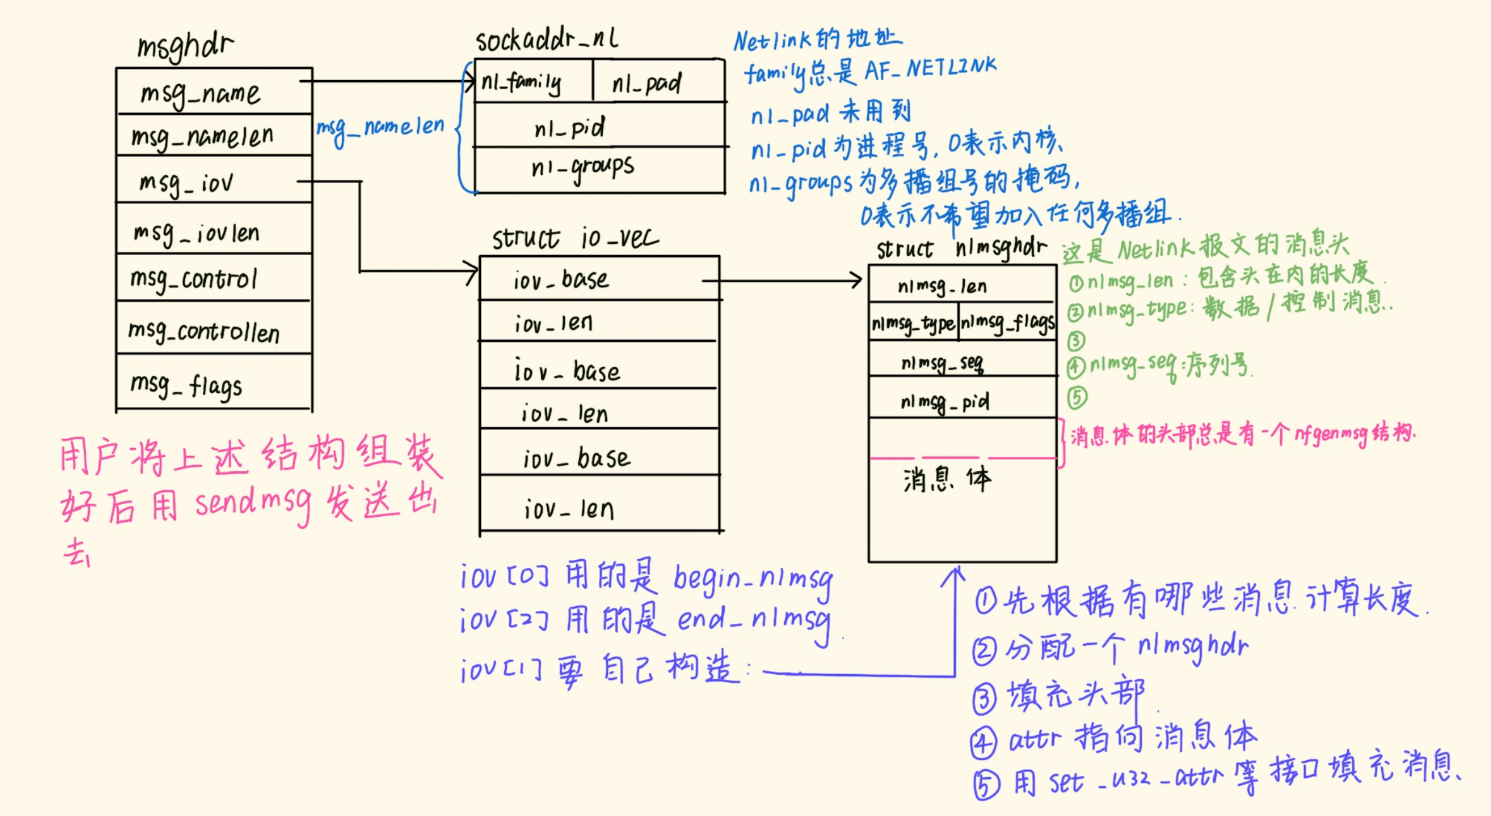 msghdr
msg_name
msg_namelen
msg_iov
msg_iovlen
msg_control
msg_controllen
msg_flags
用户将上述结构组装
好后用sendmsg发送出
去
msg_namelen
sockaddr_nl
nl_family nl_pad
nl_pid
nl_groups
Netlink的地址
family总是AF_NETLINK
nl_pad未用到
nl_pid为进程号,0表示内核、
nl_groups为多播组号的掩码,
0表示不希望加入任何多播组.
struct io_vec
iov_base
iov_len
iov_base
iov_len
iov_base
iov_len
struct nlmsghdr
nlmsg_len
nlmsg_type nlmsg_flags
nlmsg_seq
nlmsg_pid
消息体
这是Netlink报文的消息头
①nlmsg_len:包含头在内的长度.
②nlmsg_type:数据/控制消息.
③
④nlmsg_seq:序列号.
⑤
消息体的头部总是有一个nfgenmsg结构.
iov[0]用的是begin_nlmsg
iov[2]用的是end_nlmsg.
iov[1]要自己构造:
①先根据有哪些消息计算长度.
②分配一个nlmsghdr
③填充头部.
④attr指向消息体
⑤用set_u32_attr等接口填充消息、